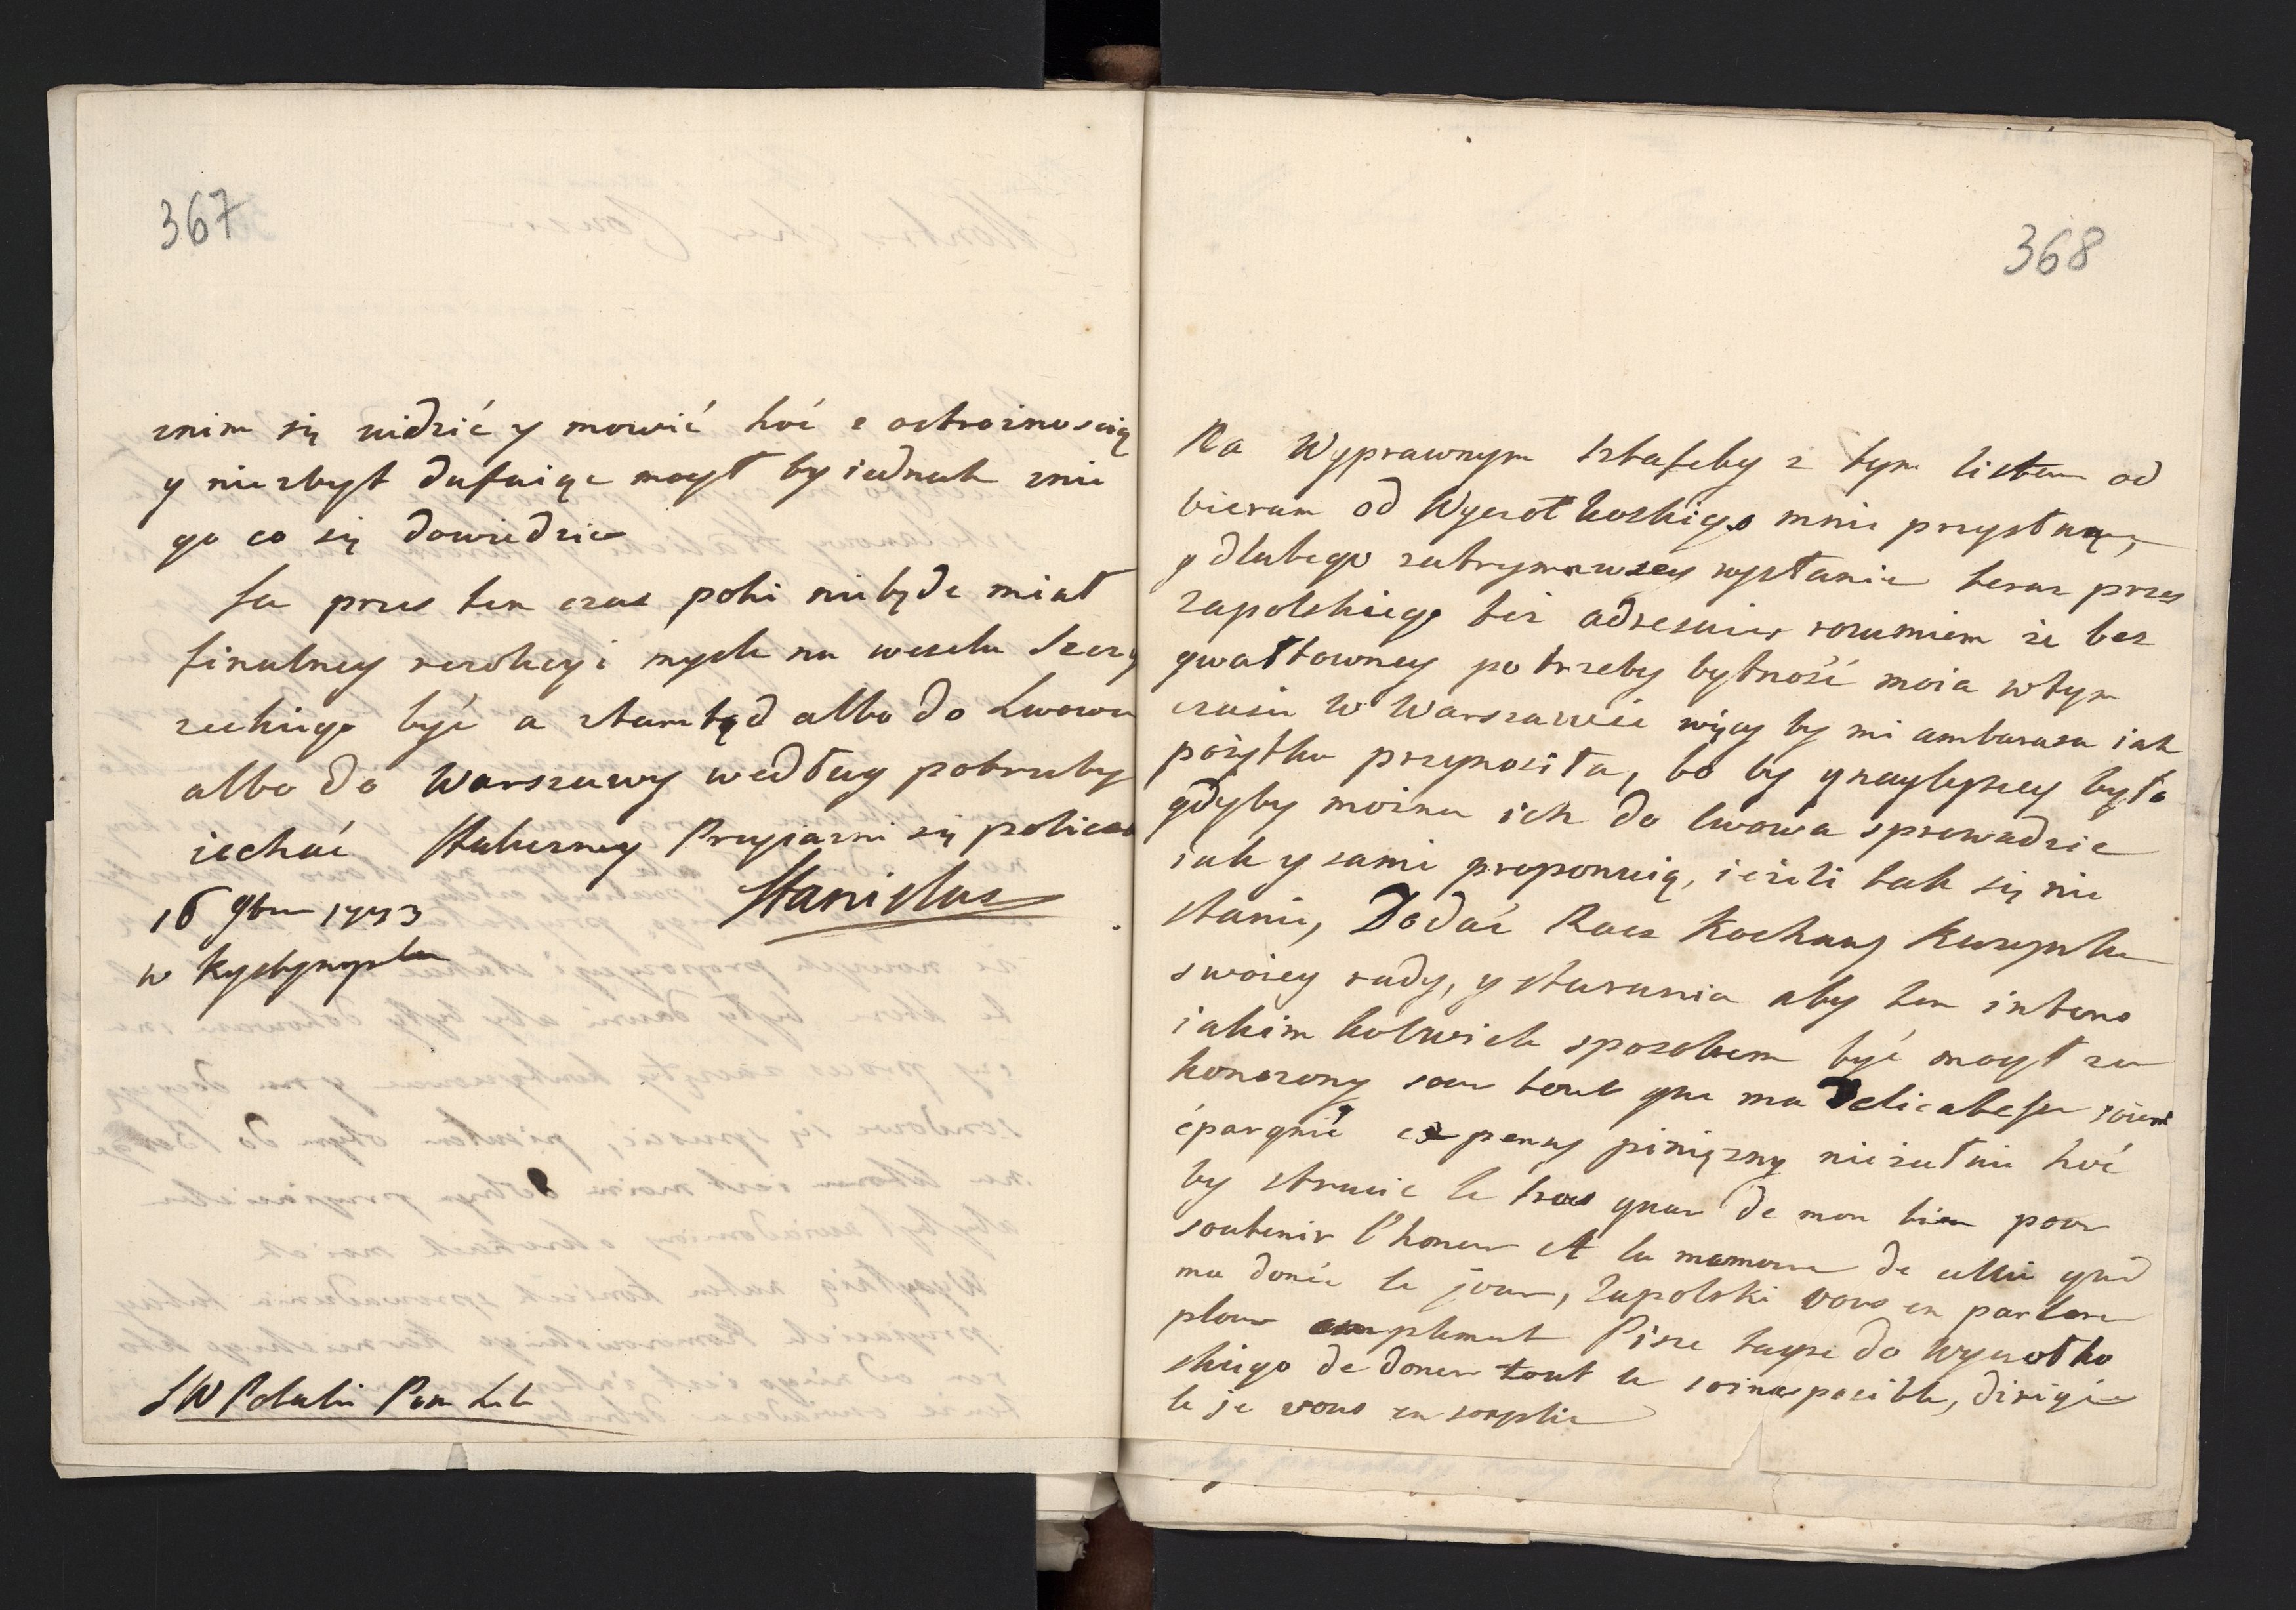 367
znim się widzić y mowić hoć z ostrożnoscią
y niezbyt dufaiąc mogł by iednak znie
go co się dowiedzic
Ja przes ten czas poki niebęde miał
finalney rezolucyi mysle na weselu Szczy
zeckiego być a ztamtąd albo do Lwowa
albo do Warszawy według potrzeby
iechać Stateczney Przyiazni się policam
Stanislas
16 9bre 1773
w Krystynopolu
SW Potocki Pan Lit
368
Na Wyprawnym sztafety z tym listem od
bieram od Wyczołkoskiego mnie przysłane,
y dlatego zatrymawszy wysłanie teraz przes
Zapolskiego też adresuie, rozumiem że bez
gwałtowney potrzeby bytność moia wtym
czasie w Warszawie więcy by mi ambarasu iak
pożytku przynosiła, bo by y naylepszey było
gdyby można ich do Lwowa sprowadzic
iak y sami proponuią, ieżeli tak się nie
stanie, Dodać Racz Kochany Kuzynku
swoiey rady, y starania aby ten interes
iakim kolwiek sposobem być mogł za
konczony sour tout que ma Delicatesse soient
épargnié expensy pinięzny nieżałuie hoć
by stracic le trois quar de mon bien pour
soutenir l'honeur et la mamoire de celui qui
ma donée le jour, Zapolski vous en parlera
plous amplement Pisze tagże do Wyczołko
skiego de doner tout le soinas posible, dirigée
le je vous en souplie